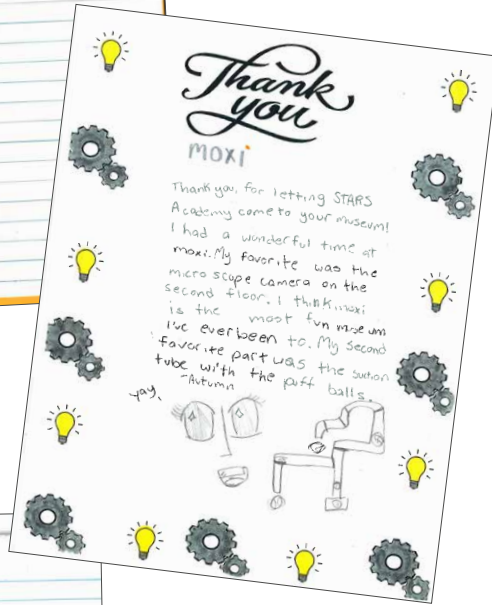 Thank
you
moxi
Thank you, for letting STARS
Academy come to your museum!
I had a wonderful time at
moxi. My favorite was the
micro scope camera on the
second floor. I think moxi
is the most fun museum
I've ever been to. My second
favorite part was the suction
tube with the puff balls.
-Autumn
yay,